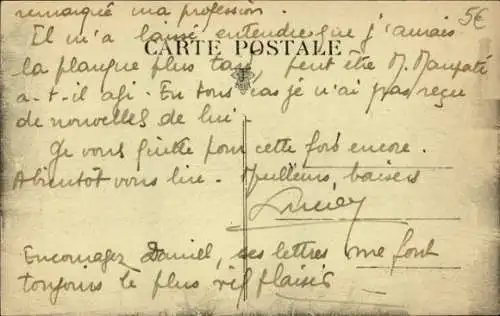 remarqué ma profession.
5€
Il m'a laissé entendre que j'aurais
CARTE POSTALE
la planque plus tard peut être M. Maupaté
a-t-il agi. En tous cas je n'ai pas reçu
de nouvelles de lui
Je vous quitte pour cette fois encore.
A bientôt vous lire. Meilleurs baisers
Encouragez Daniel, ses lettres me font
toujours le plus vif plaisir